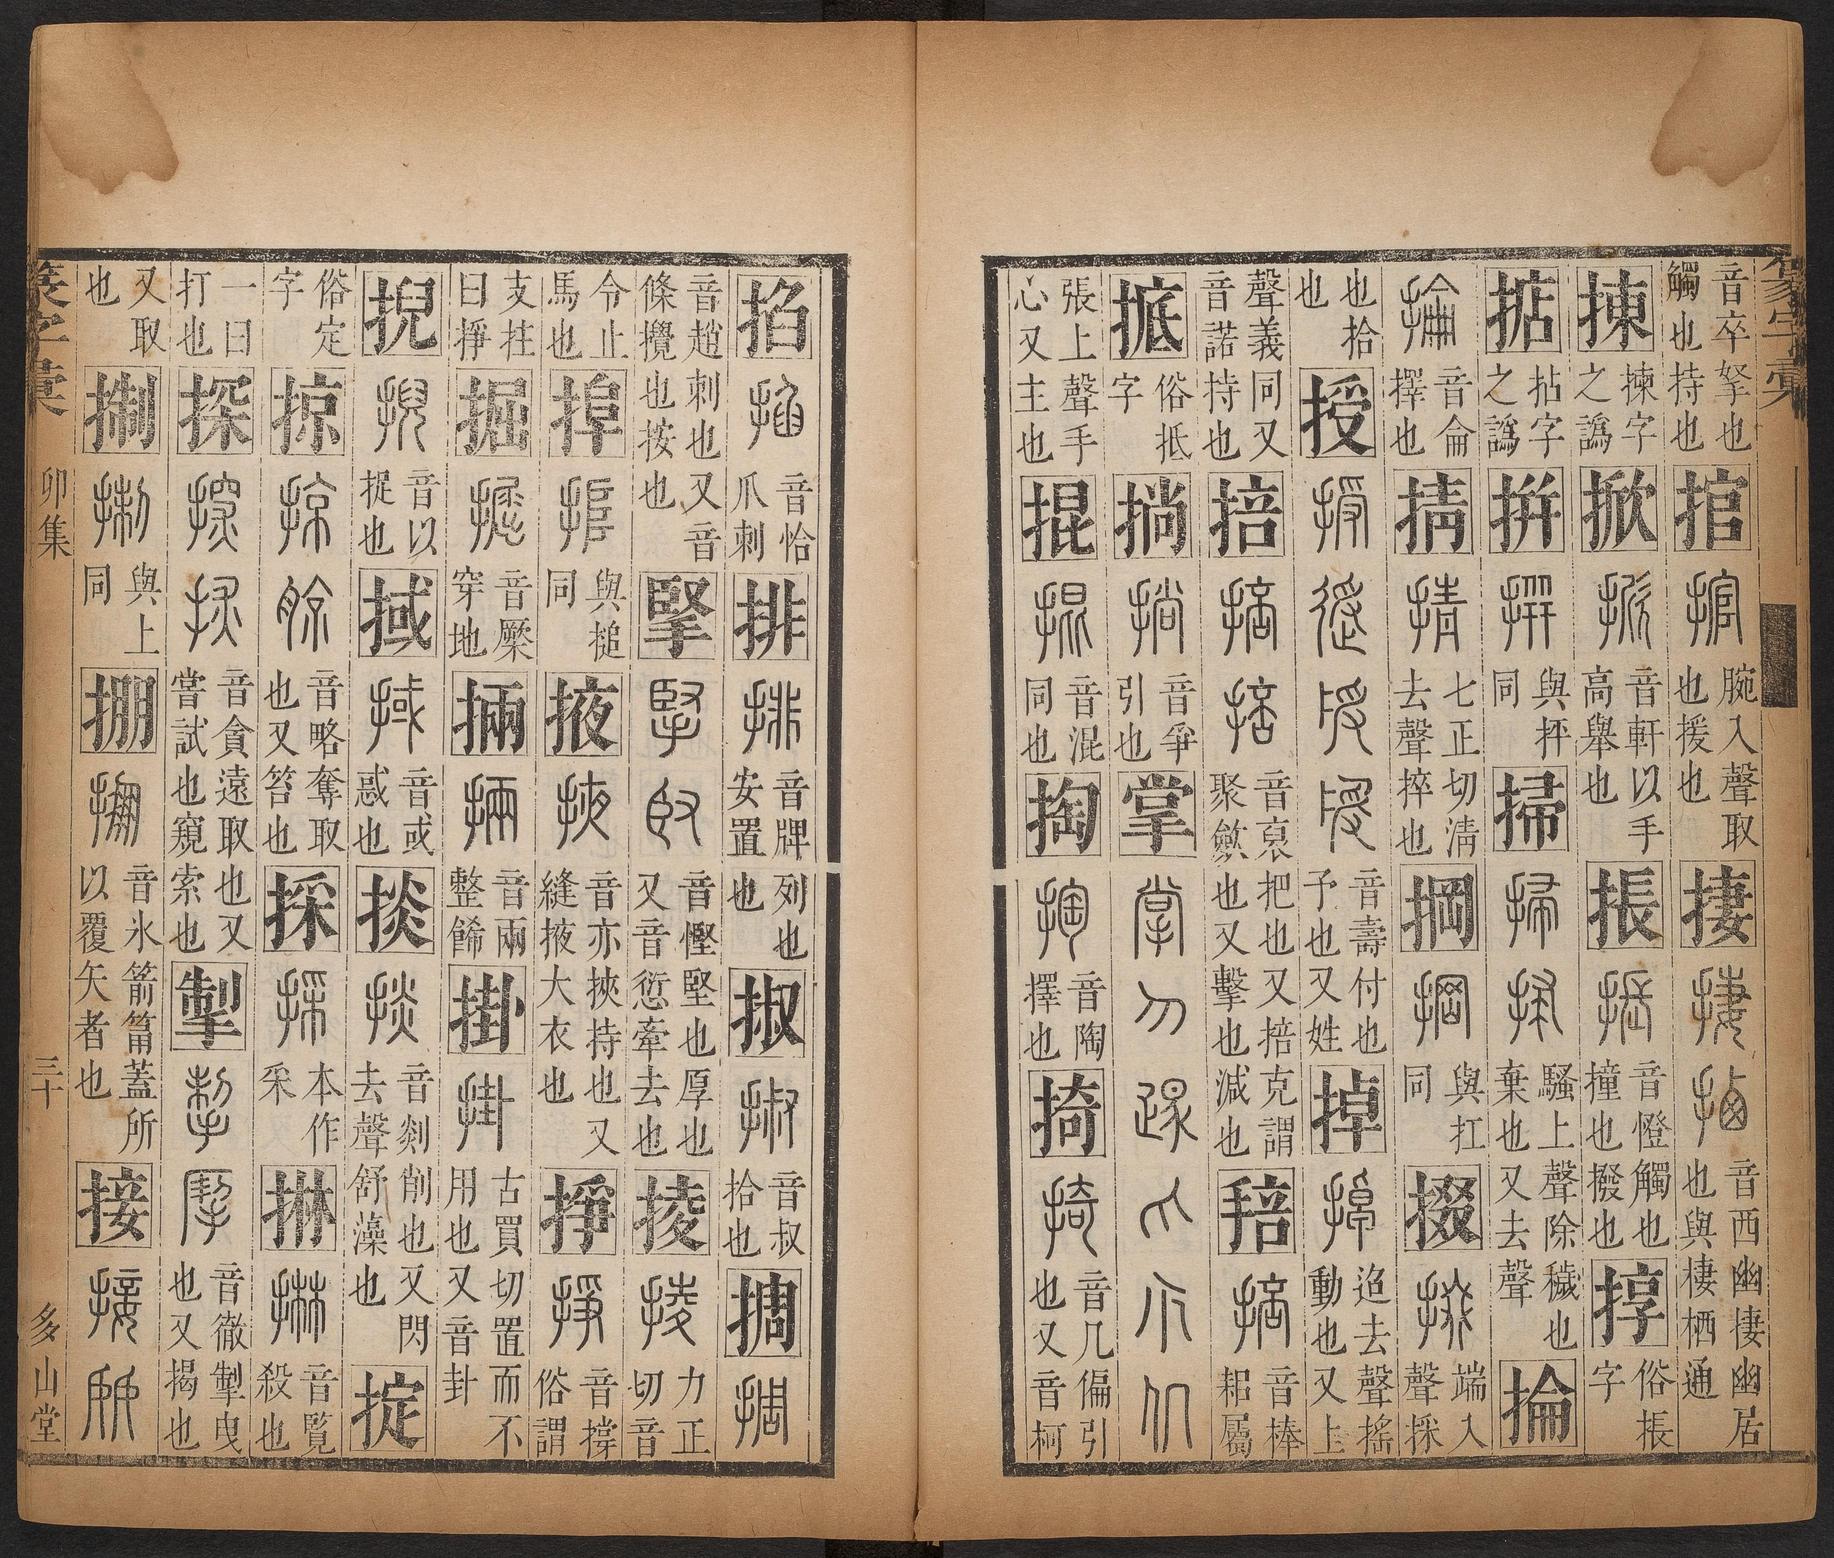 篆字彙
音卒拏也觸也持也捾腕入聲取也援也捿音西幽捿幽居也與棲栖通
捒揀字之譌掀音軒以手高舉也掁音燈觸也撞也撥也俗掁字
掂拈字之譌拼與抨同掃騷上聲除穢也棄也又去聲掄
音侖擇也掅七正切淸去聲捽也掆與扛同掇端入聲採
也拾也授音壽付也予也又姓掉迢去聲搖動也又上
聲義同又音諾持也掊音裒把也又掊克謂聚歛也又擊也減也音棒耜屬
掋俗抵字音爭引也掌
張上聲手心又主也掍音混同也掏音陶擇也掎音几偏引也又音柯
掐音恰爪刺排音牌列也安置也掓音叔拾也㨄
音趙刺也又音條攪也按也掔音慳堅也厚也又音愆牽去也掕力正切音
令止馬也與搥同掖音亦挾持也又縫掖大衣也掙音撐俗謂
支拄曰掙掘音橜穿地掚音兩整餙掛古買切置而不用也又音卦
掜音以捉也掝音或惑也掞音剡削也又閃去聲舒藻也掟
俗定字掠音略奪取也又笞也採本作采㨆音覽殺也
一曰打也探音貪遠取也又嘗試也窺索也掣音徹掣曳也又揭也
又取也與上同掤音氷箭筩蓋所以覆矢者也接
篆字彙 卯集 三十 多山堂